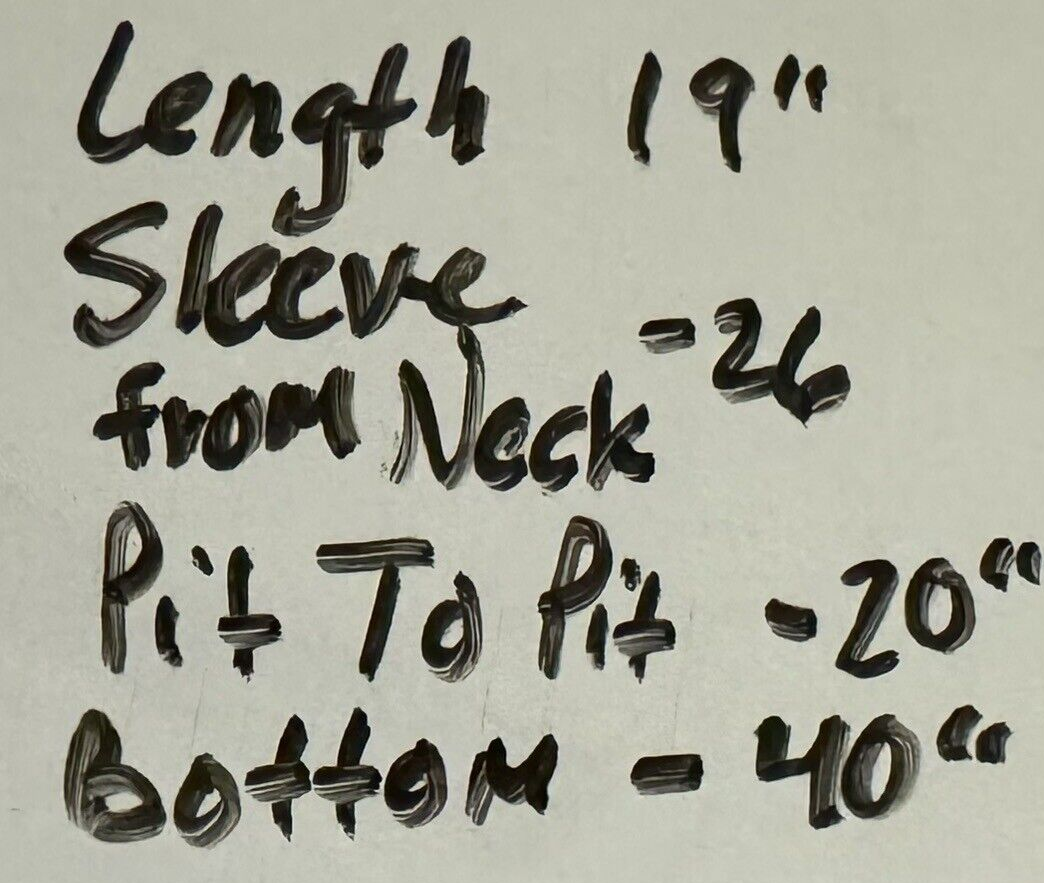 Length 19"
Sleeve
from Neck -26
Pit To Pit -20"
Bottom - 40"